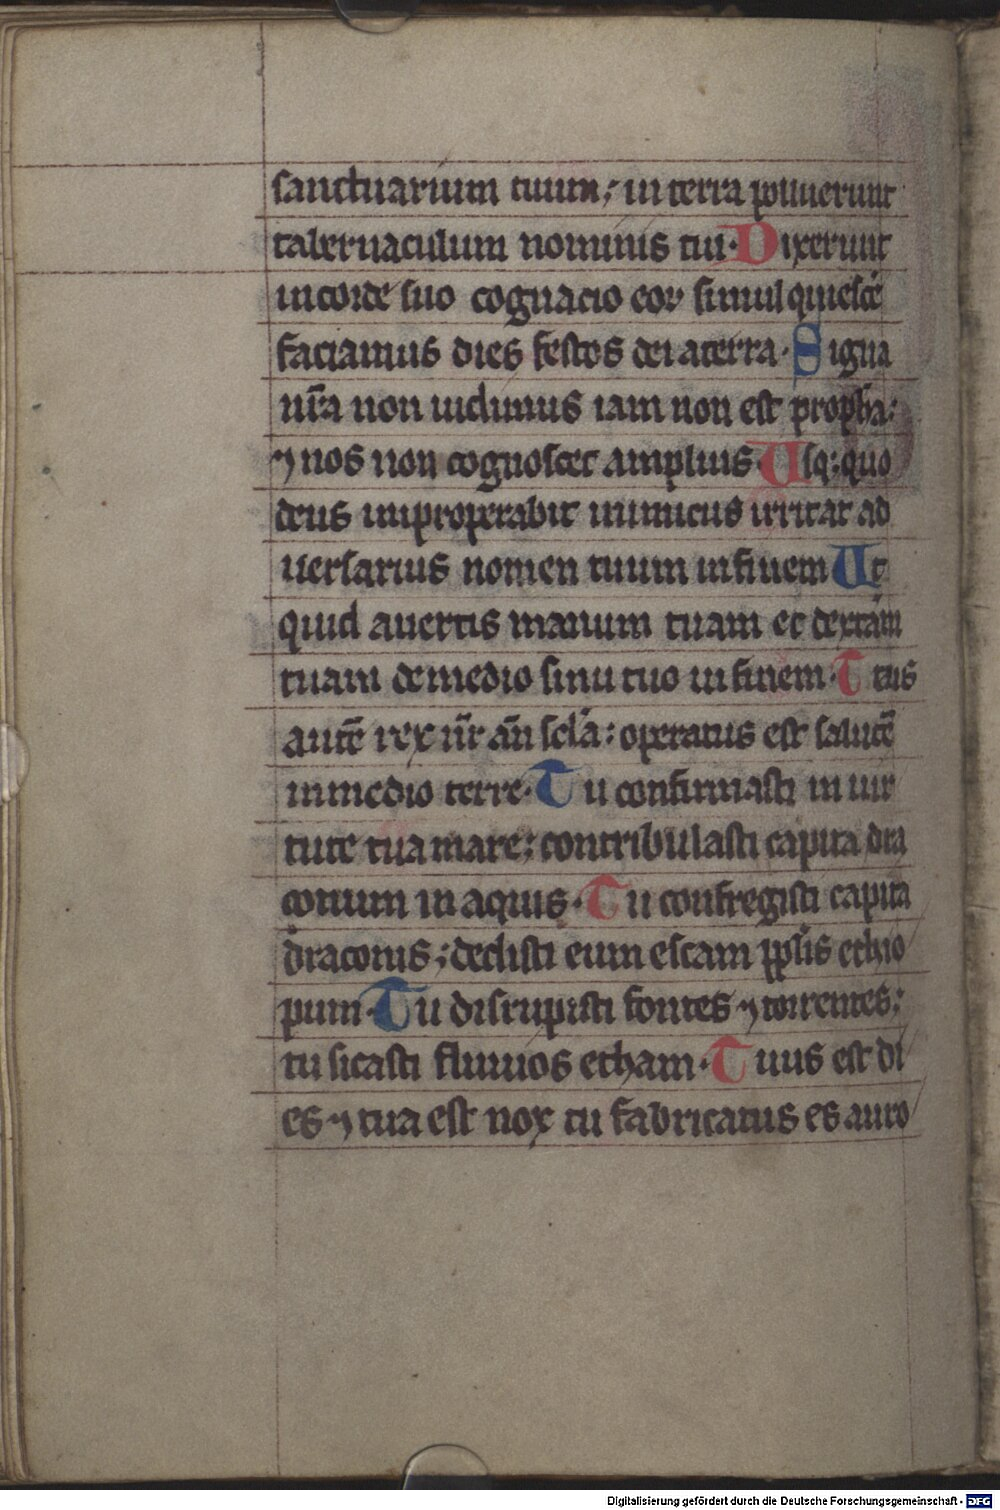 sanctuarium tuum; in terra polluerunt
tabernaculum nominis tui. Dixerunt
in corde suo cognacio eoꝝ simul quiescē
faciamus dies festos dei a terra. Signa
nr̄a non uidimus iam non est propħa:
⁊ nos non cognoscet amplius. Usq; quo
deus improperabit inimicus irritat ad
uersarius nomen tuum in finem Ut
quid auertis manum tuam et dextām
tuam de medio sinu tuo in finem. Deus
autē rex nr̄ an̄ scl̄a: operatus est salutē
in medio terre. Tu confirmasti in uir
tute tua mare; contribulasti capita dra
conum in aquis. Tu confregisti capita
draconis; dedisti eum escam ppl̄is ethio
pum. Tu disrupisti fontes ⁊ torrentes;
tu sicasti fluuios etham. Tuus est di
es ⁊ tua est nox tu fabricatus es auro
Digitalisierung gefördert durch die Deutsche Forschungsgemeinschaft - DFG